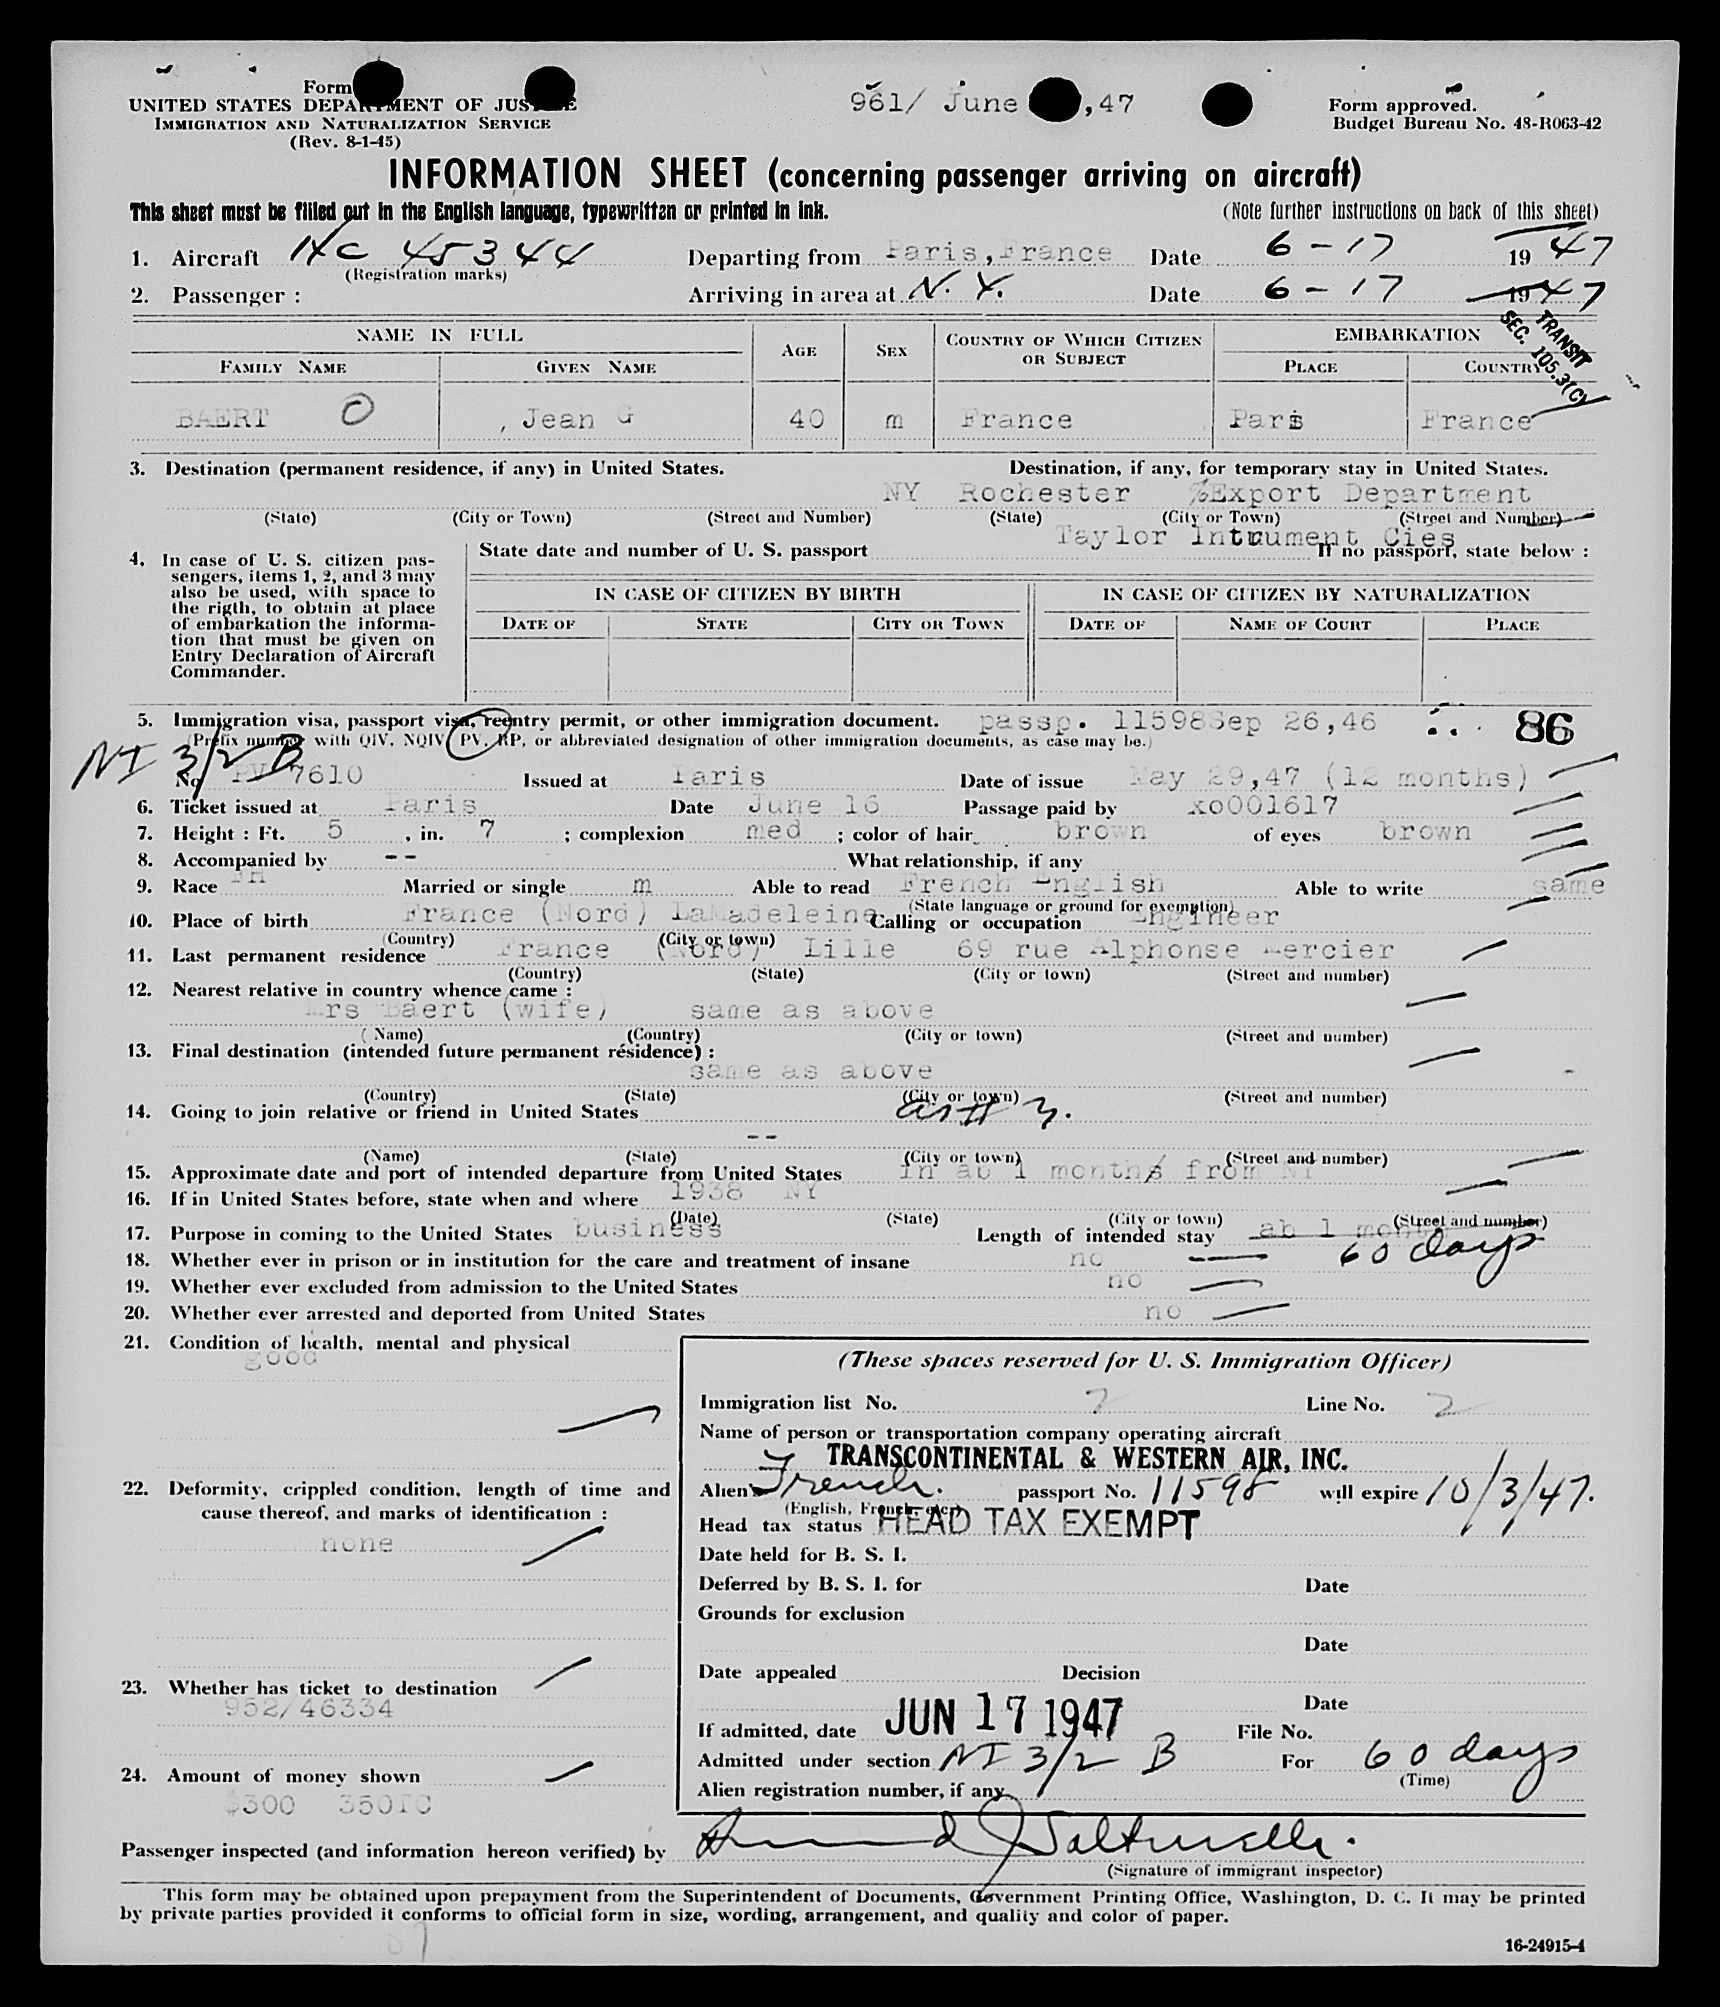 Form
UNITED STATES DEPARTMENT OF JUSTICE
IMMIGRATION AND NATURALIZATION SERVICE
(Rev. 8-1-45)
961/ June ,47
Form approved.
Budget Bureau No. 48-R063-42
INFORMATION SHEET (concerning passenger arriving on aircraft)
This sheet must be filled out in the English language, typewritten or printed in ink.
(Note further instructions on back of this sheet)
1. Aircraft NC 45344 Departing from Paris,France Date 6-17 1947
(Registration marks)
2. Passenger : Arriving in area at N.Y. Date 6-17 1947
TRANSIT
SEC. 105.3(C)
NAME IN FULL AGE SEX COUNTRY OF WHICH CITIZEN OR SUBJECT EMBARKATION
FAMILY NAME GIVEN NAME PLACE COUNTRY
BAERT O , Jean G 40 m France Paris France
3. Destination (permanent residence, if any) in United States. Destination, if any, for temporary stay in United States.
NY Rochester %Export Department
(State) (City or Town) (Street and Number) (State) (City or Town) (Street and Number)
Taylor Intrument Cies
4. In case of U. S. citizen pas-
sengers, items 1, 2, and 3 may
also be used, with space to
the rigth, to obtain at place
of embarkation the informa-
tion that must be given on
Entry Declaration of Aircraft
Commander.
State date and number of U. S. passport If no passport, state below :
IN CASE OF CITIZEN BY BIRTH IN CASE OF CITIZEN BY NATURALIZATION
DATE OF STATE CITY OR TOWN DATE OF NAME OF COURT PLACE
5. Immigration visa, passport visa, reentry permit, or other immigration document. passp. 11598 Sep 26,46 86
(Prefix number with QIV, NQIV, PV, RP, or abbreviated designation of other immigration documents, as case may be.)
NI 3/2 B
No PV 7610 Issued at Paris Date of issue May 29,47 (12 months)
6. Ticket issued at Paris Date June 16 Passage paid by xo001617
7. Height : Ft. 5 , in. 7 ; complexion med ; color of hair brown of eyes brown
8. Accompanied by -- What relationship, if any
9. Race FH Married or single m Able to read French English Able to write same
(State language or ground for exemption)
10. Place of birth France (Nord) LaMadeleine Calling or occupation Engineer
(Country) (City or town)
11. Last permanent residence France (Nord) Lille 69 rue Alphonse Mercier
(Country) (State) (City or town) (Street and number)
12. Nearest relative in country whence came :
Mrs Baert (wife) same as above
(Name) (Country) (City or town) (Street and number)
13. Final destination (intended future permanent résidence) :
same as above
(Country) (State) (City or town) (Street and number)
14. Going to join relative or friend in United States as # 3.
--
(Name) (State) (City or town) (Street and number)
15. Approximate date and port of intended departure from United States in ab 1 months from NY
16. If in United States before, state when and where 1938 NY
(Date) (State) (City or town) (Street and number)
17. Purpose in coming to the United States business Length of intended stay ab 1 month
60 days
18. Whether ever in prison or in institution for the care and treatment of insane no
19. Whether ever excluded from admission to the United States no
20. Whether ever arrested and deported from United States no
21. Condition of health, mental and physical
good
22. Deformity, crippled condition, length of time and
cause thereof, and marks of identification :
none
23. Whether has ticket to destination
952/46334
24. Amount of money shown
$300 350TC
(These spaces reserved for U. S. Immigration Officer)
Immigration list No. 2 Line No. 2
Name of person or transportation company operating aircraft
TRANSCONTINENTAL & WESTERN AIR, INC.
Alien's French. passport No. 11598 will expire 10/3/47.
(English, French, etc.)
Head tax status HEAD TAX EXEMPT
Date held for B. S. I.
Deferred by B. S. I. for Date
Grounds for exclusion
Date
Date appealed Decision
Date
If admitted, date JUN 17 1947 File No.
Admitted under section NI 3/2 B For 60 days
(Time)
Alien registration number, if any
Passenger inspected (and information hereon verified) by
(Signature of immigrant inspector)
This form may be obtained upon prepayment from the Superintendent of Documents, Government Printing Office, Washington, D. C. It may be printed
by private parties provided it conforms to official form in size, wording, arrangement, and quality and color of paper.
16-24915-4